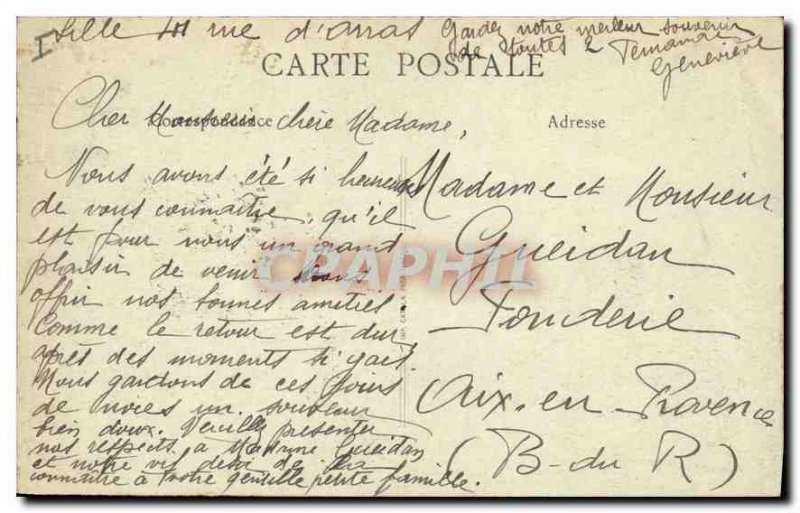 Lille 41 rue d'Arras
Gardez notre meilleur souvenir
de toutes 2
Geneviève
CARTE POSTALE
Correspondance
Adresse
Cher Monsieur chère Madame,
Nous avons été si heureuses
de vous connaître, qu'il
est pour nous un grand
plaisir de venir vous
offrir nos bonnes amitiés
Comme le retour est dur,
après des moments si gais.
Nous gardons de ces jours
de noces un souvenir
bien doux. Veuillez présenter
nos respects à Madame Gueidan
et notre vif désir de la
connaître à votre gentille petite famille.
Madame et Monsieur
Gueidan
Fonderie
Aix-en-Provence
(B-du R)
CPAPHIL